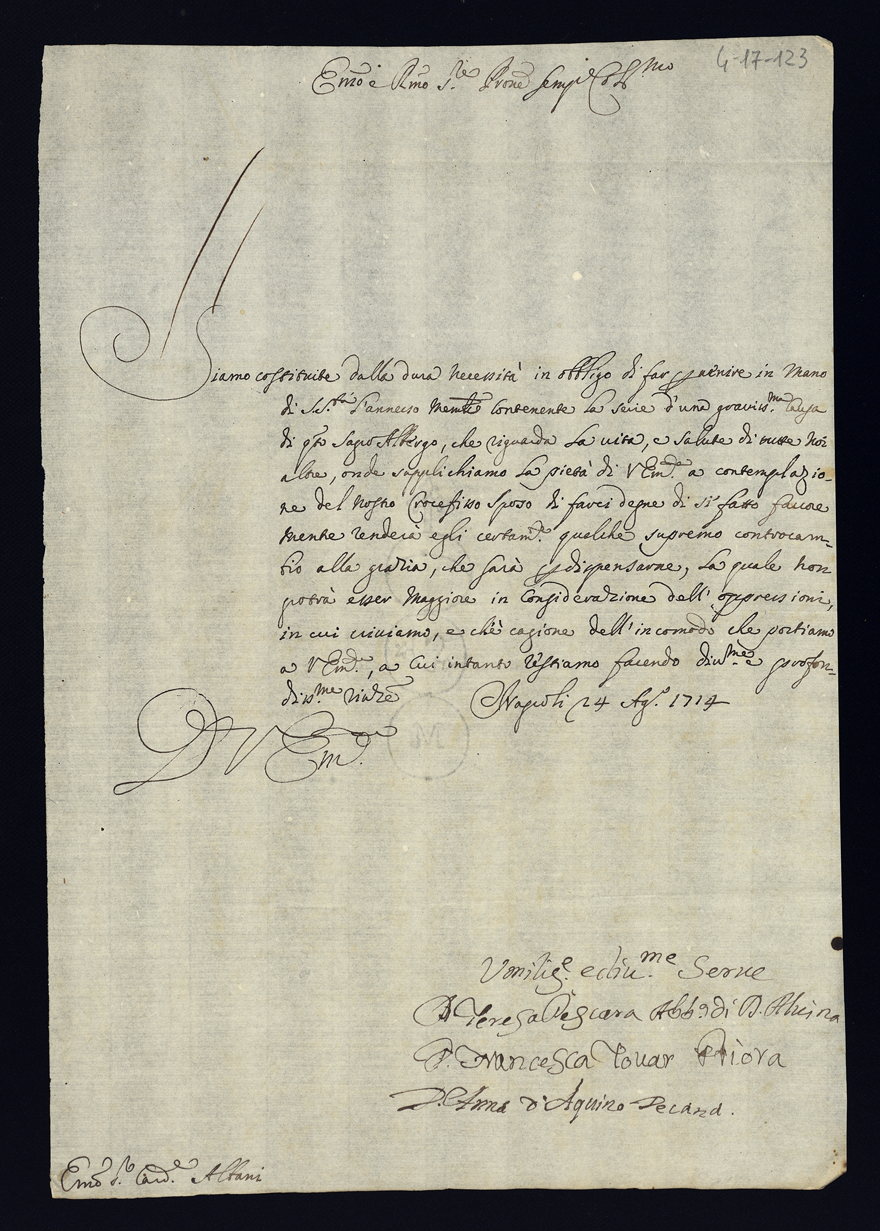 4-17-123
Em̃o e R̃mo S.re Pr̃one Semp.e Col.mo
Siamo costituite dalla dura necessità in obbligo di far pervenire in mano
di S. S.tà l'annesso Mem.le contenente la serie d'una graviss.ma causa
di q.to Sagro Albergo, che riguarda la vita, e salute di tutte noi
altre, onde supplichiamo la pietà di V Em.a a contemplazio-
ne del nostro Crocefisso Sposo di farci degne di sì fatto favore
mentre renderà egli certam.te qualche supremo controcam-
bio alla grazia, che sarà p dispensarne, la quale non
potrà esser maggiore in considerazione dell'oppressioni,
in cui viviamo, e ch'è cagione dell'incomodo che portiamo
a V Em.a, a cui intanto restiamo facendo div.me e profon-
diss.me riṽze Napoli 24 Ag.o 1714
D V Em.a
Vmilis.e e div.me Serue
D. Teresa Pescara Abb.a di D. Aluina
D. Francesca Touar Priora
D. Anna d'Aquino Decana.
Em̃o S.r Card.e Albani